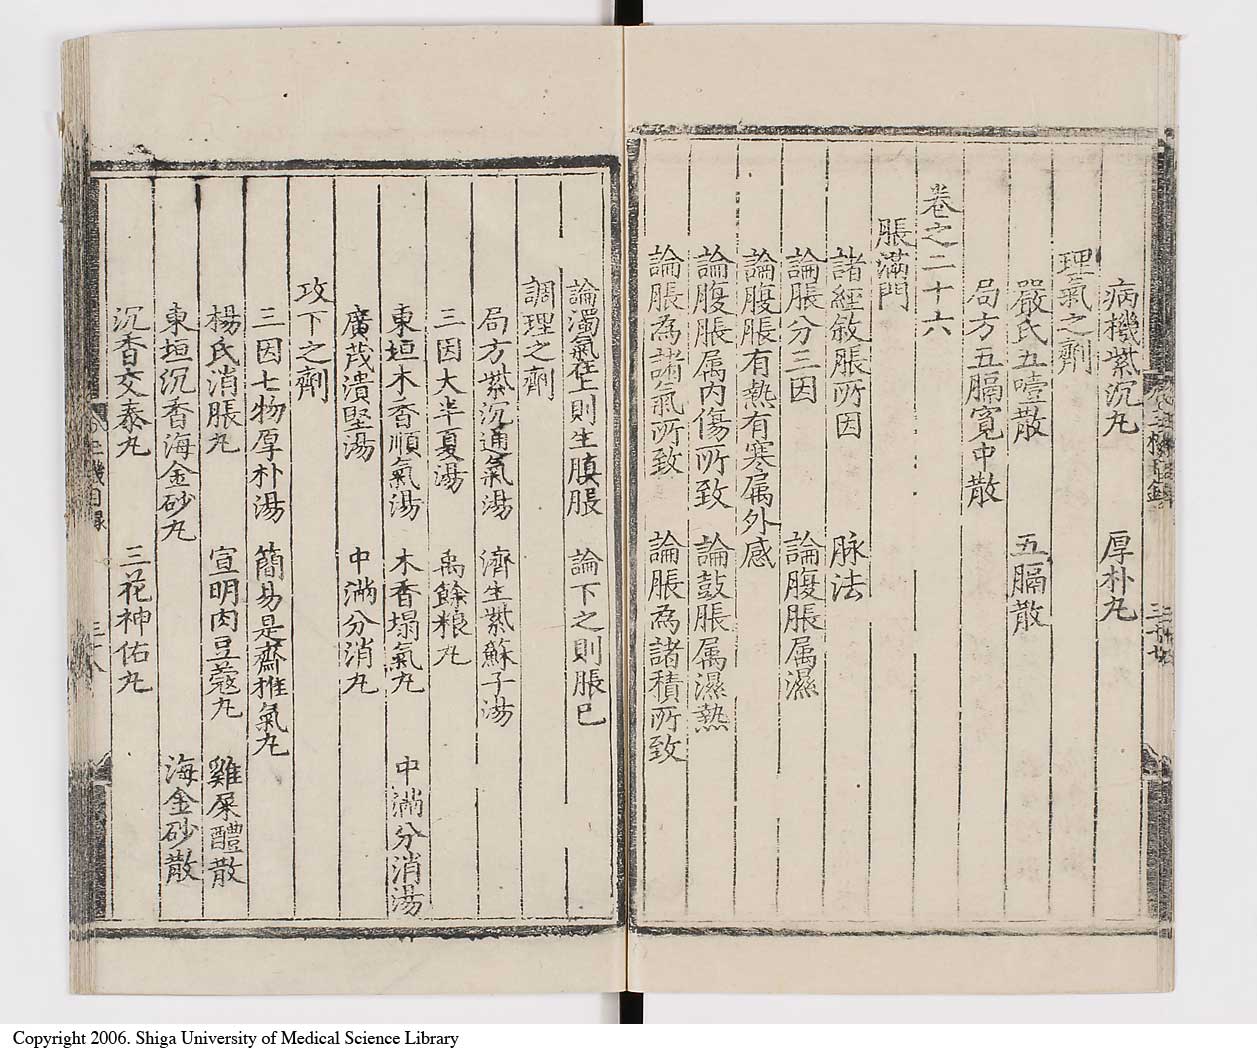 病機紫沉丸　厚朴丸
理氣之劑
嚴氏五噎散　五膈散
局方五膈寬中散
卷之二十六
脹滿門
諸經敘脹所因　脉法
論脹分三因　論腹脹属濕
論腹脹有熱有寒属外感
論腹脹属内傷所致　論鼓脹属濕熱
論脹為諸氣所致　論脹為諸積所致
論濁氣在上則生䐜脹　論下之則脹已
調理之劑
局方紫沉通氣湯　濟生紫蘇子湯
三因大半夏湯　禹餘粮丸
東垣木香順氣湯　木香塌氣丸　中滿分消湯
廣茂潰堅湯　中滿分消丸
攻下之劑
三因七物厚朴湯　簡易是齋推氣丸
楊氏消脹丸　宣明肉豆蔻丸　雞屎醴散
東垣沉香海金砂丸　海金砂散
沉香交泰丸　三花神佑丸
Copyright 2006. Shiga University of Medical Science Library